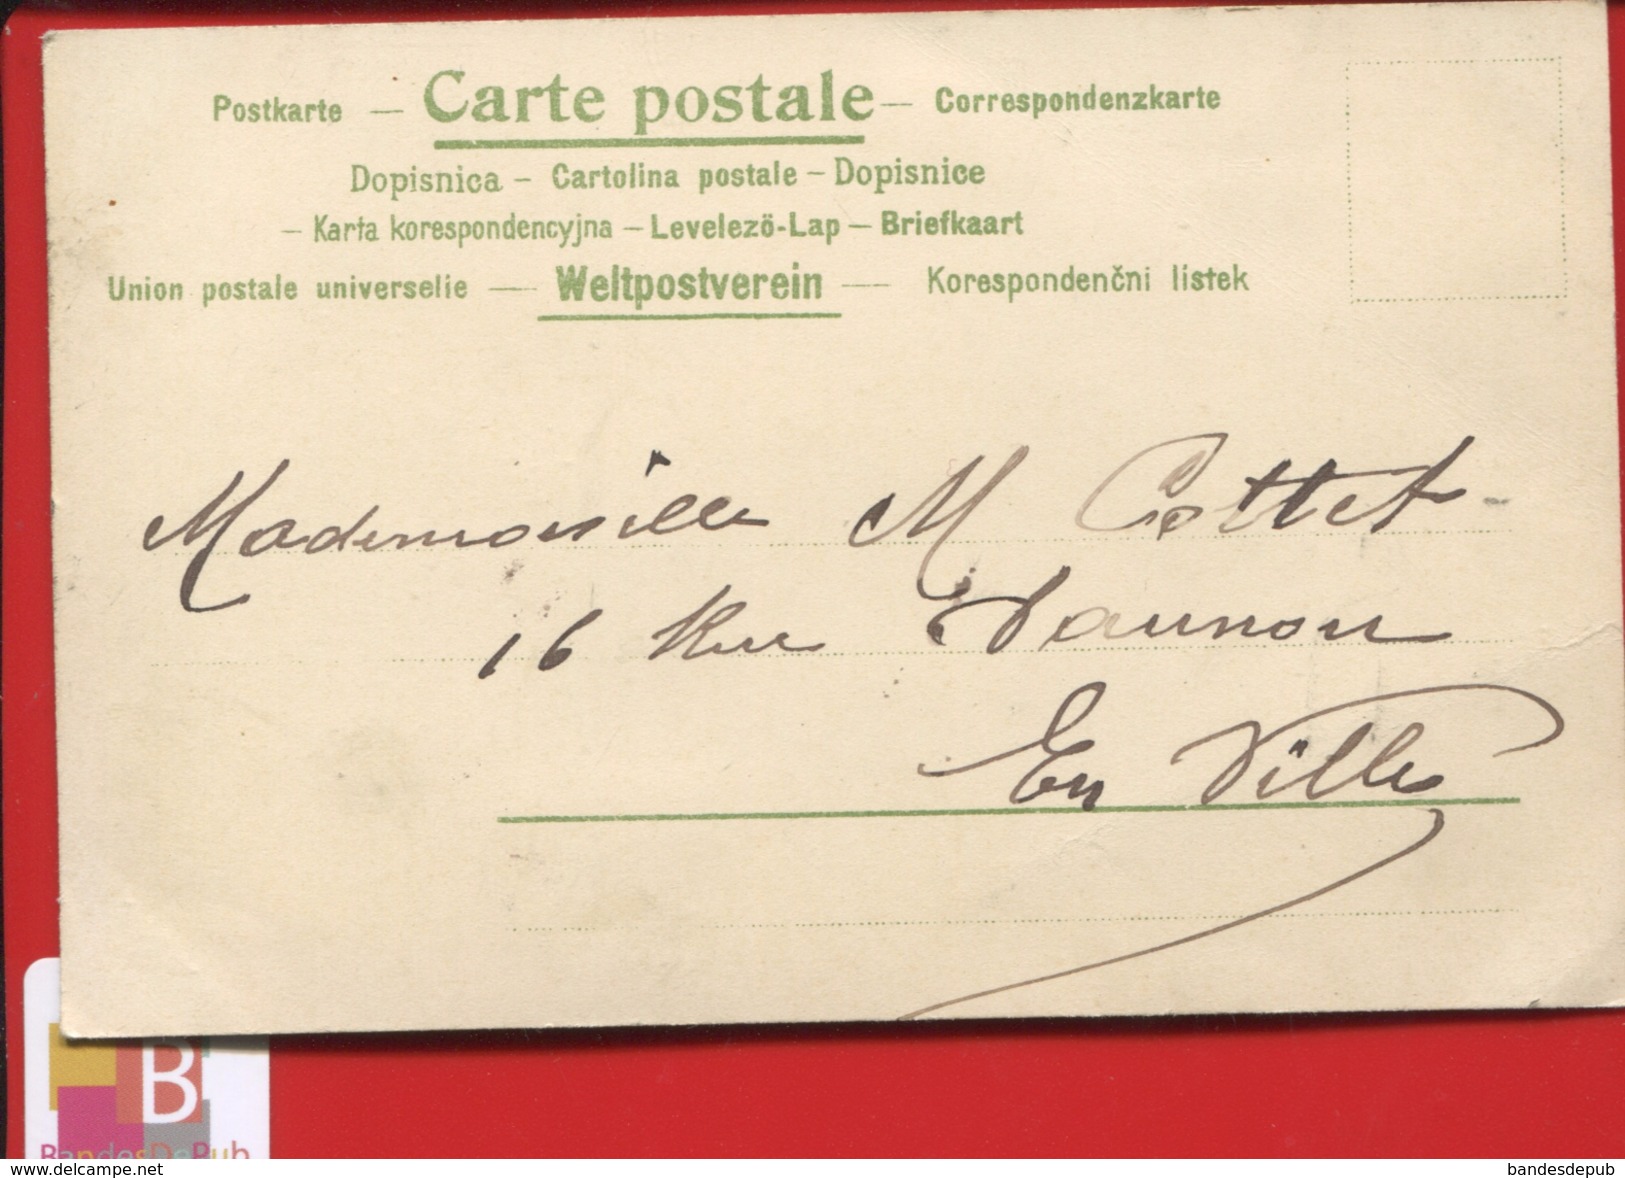 Postkarte — Carte postale — Correspondenzkarte
Dopisnica – Cartolina postale – Dopisnice
– Karta korespondencyjna – Levelezö-Lap – Briefkaart
Union postale universelle — Weltpostverein — Korespondenčni lístek
Mademoiselle M Cottet
16 Rue Daunou
En Ville
B
BandesDePub
www.delcampe.net
bandesdepub